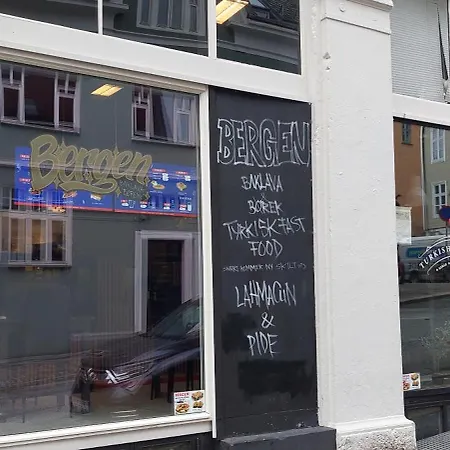 Bergen
BERGEN
BAKLAVA
BOREK
TURKISK FAST
FOOD
LAHMACUN
&
PIDE
TURKISH